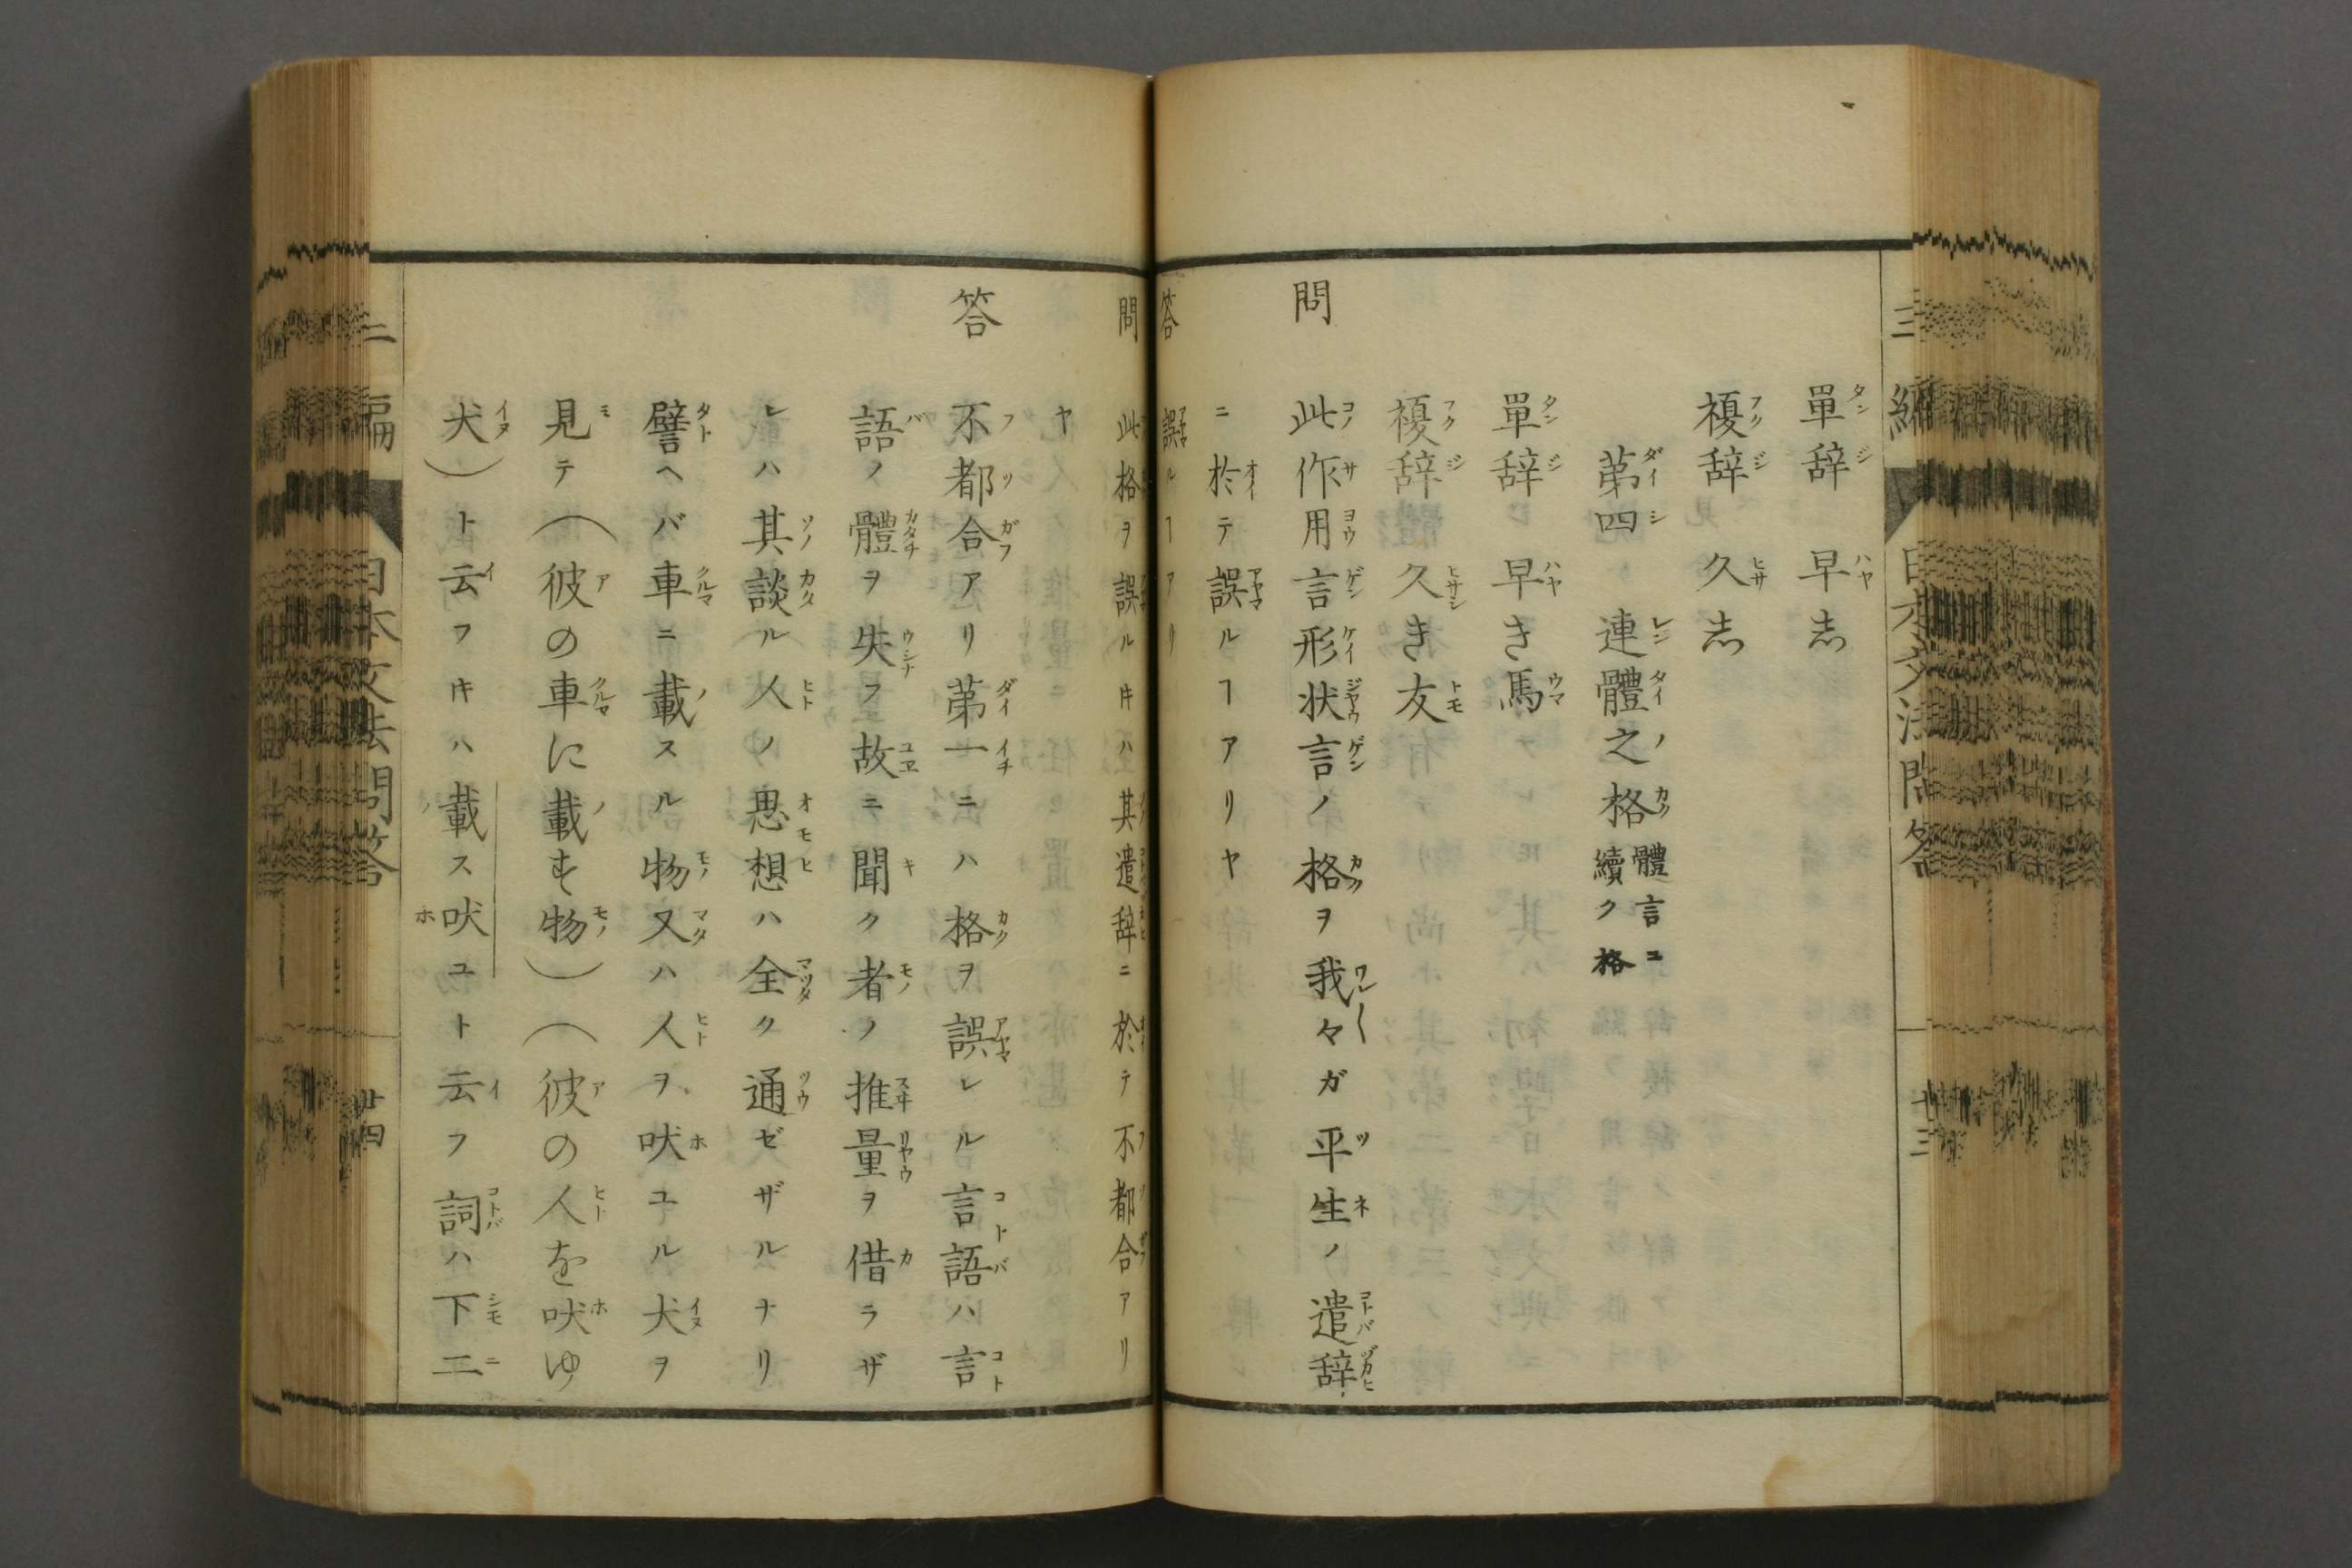 單辞　早志
複辞　久志
第四　連體之格 體言ニ續ク格
單辞　早き馬
複辞　久き友
問　此作用言形状言ノ格ヲ我々ガ平生ノ遣辞
ニ於テ誤ルヿアリヤ
答　誤ルヿアリ
問　此格ヲ誤ル𪜈ハ其遣辞ニ於テ不都合アリ
ヤ
答　不都合アリ第一ニハ格ヲ誤レル言語ハ言
語ノ體ヲ失フ故ニ聞ク者ノ推量ヲ借ラザ
レハ其談ル人ノ思想ハ全ク通ゼザルナリ
譬ヘバ車ニ載スル物又ハ人ヲ吠ユル犬ヲ
見テ（彼の車に載す物）（彼の人を吠ゆ
犬）ト云フキハ載ス吠ユト云フ詞ハ下ニ
三編　日本文法問答　廿三
三編　日本文法問答　廿四